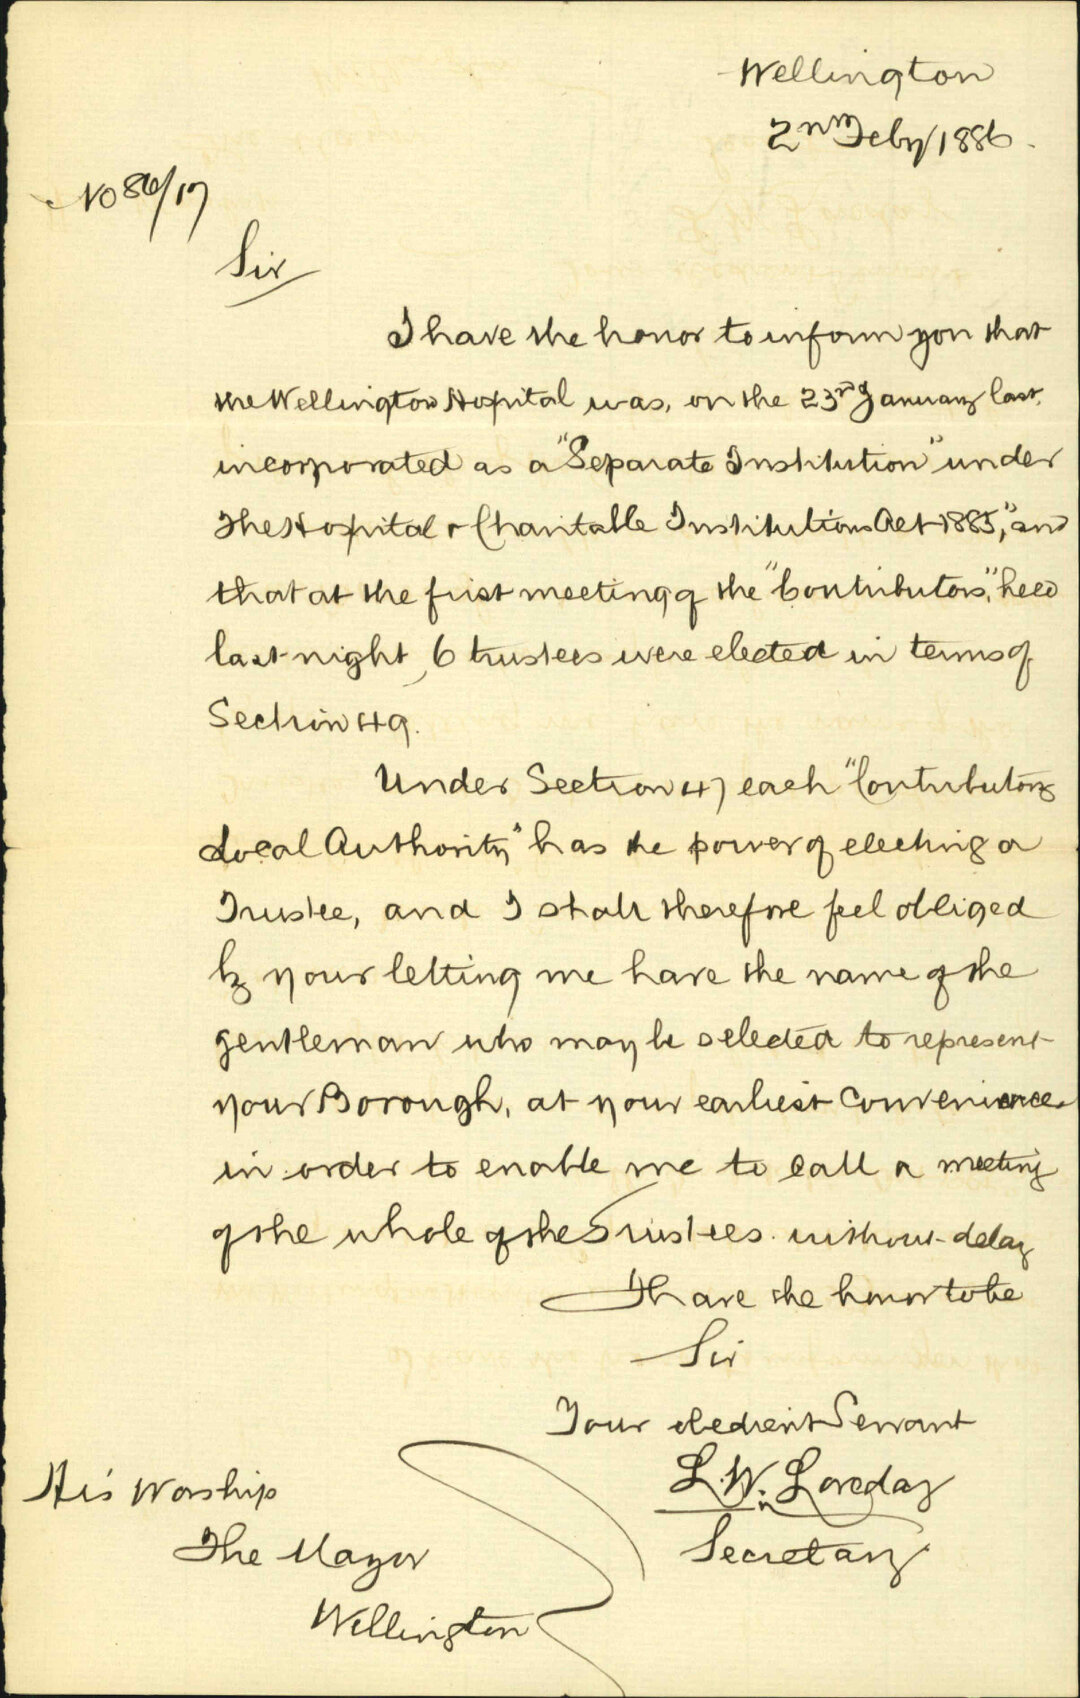 Wellington
2nd Feby/1886.
No 86/17
Sir
I have the honor to inform you that
the Wellington Hospital was, on the 23rd January last,
incorporated as a "Separate Institution" under
The Hospital & Charitable Institutions Act 1885," and
that at the first meeting of the "Contributors", held
last night, 6 trustees were elected in terms of
Section 49.
Under Section 47 each "Contributory
Local Authority" has the power of electing a
Trustee, and I shall therefore feel obliged
by your letting me have the name of the
gentleman who may be selected to represent
your Borough, at your earliest convenience
in order to enable me to call a meeting
of the whole of the Trustees without delay
I have the honor to be
Sir
Your obedient Servant
L. W. Loveday
Secretary
His Worship
The Mayor
Wellington